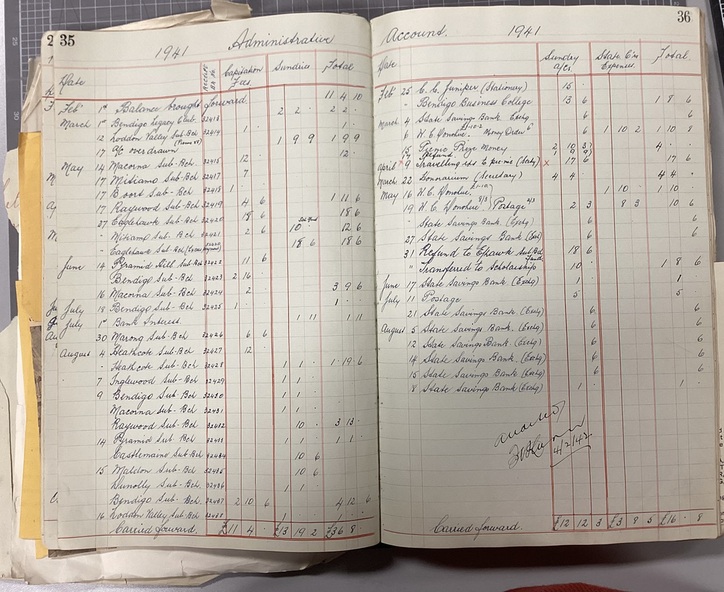 2 35
1941 Administrative
Date
Capitation Fees. Sundries Total
11 4 10
Feb 1st Balance brought forward
March 1st Bendigo Legacy Club 32413 2 2 · 2 2 ·
12 Loddon Valley Sub-Bch 32414 · 1 · · 1 ·
17 a/c overdrawn 1 9 9 1 9 9
May 14 Macorna Sub-Bch 32415 12 · 12 ·
17 Mitiamo Sub-Bch 32417 7 ·
17 Boort Sub-Bch 32418 1
17 Raywood Sub-Bch 32419 4 6 1 11 6
27 Eaglehawk Sub-Bch 32420 18 6 18 6
" Mitiamo Sub-Bch 32421 2 6 10 · 12 6
" Eaglehawk Sub-Bch 18 6 18 6
June 14 Pyramid Hill Sub-Bch 32422 11 6
Bendigo Sub-Bch 32423 2 16
16 Macorna Sub-Bch 32424 2 · 3 9 6
July 18 Bendigo Sub-Bch 32425 1 · · 1 ·
July 1st Bank Interest 11 11
30 Marong Sub-Bch 32426 6 6
August 4 Heathcote Sub-Bch 32427 12 ·
Heathcote Sub-Bch 32428 1 1 · 1 19 6
7 Inglewood Sub-Bch 32429 1 1 ·
9 Bendigo Sub-Bch 32430 1 1 ·
Macorna Sub-Bch 32431 1 1 ·
Raywood Sub-Bch 32432 10 · 3 13 ·
14 Pyramid Sub-Bch 32433 1 1 · 1 1 ·
Castlemaine Sub-Bch 32434 10 6
15 Maldon Sub-Bch 32435 10 6
Dunolly Sub-Bch 32436 1 1
Bendigo Sub-Bch 32437 2 10 6 4 12 6
16 Loddon Valley Sub-Bch
Carried forward £11 4 · £13 19 2 £36 8
36
Account. 1941
Date
Sundry a/cs. State C'ee Expenses. Total.
Feb 25 C. C. Juniper (Stationery) 15 ·
Bendigo Business College 13 6 1 8 6
March 4 State Savings Bank (Exchg) 6
6 W. C. Donohue Money Order 6 1 10 2 1 10 8
15 Picnic Prize Money 2 10 3 4 ·
April 9 Travelling exs to picnic (Secty) × 17 6 17 6
March 22 Honorarium (Secretary) 4 4 · 4 4 ·
May 16 W. C. Donohue 1 10 · 1 10 ·
19 W. C. Donohue Postage 2 3 8 3 10 6
State Savings Bank. (Exchg) 6
27 State Savings Bank (Exch) 6
31 Refund to E'hawk Sub Bch 18 6
" Transferred to Scholarship 10 · 1 8 6
June 17 State Savings Bank (Exchg) 1 · 1 ·
July 11 Postage 5 · 5 ·
21 State Savings Bank (Exchg) 6
August 5 State Savings Bank (Exchg) 6
12 State Savings Bank (Exchg) 6
14 State Savings Bank (Exchg) 6
15 State Savings Bank (Exchg) 6
8 State Savings Bank (Exchg) 1 · 1 ·
Audited
4/2/42
Carried forward. £12 12 3 £3 8 5 £16 · 8